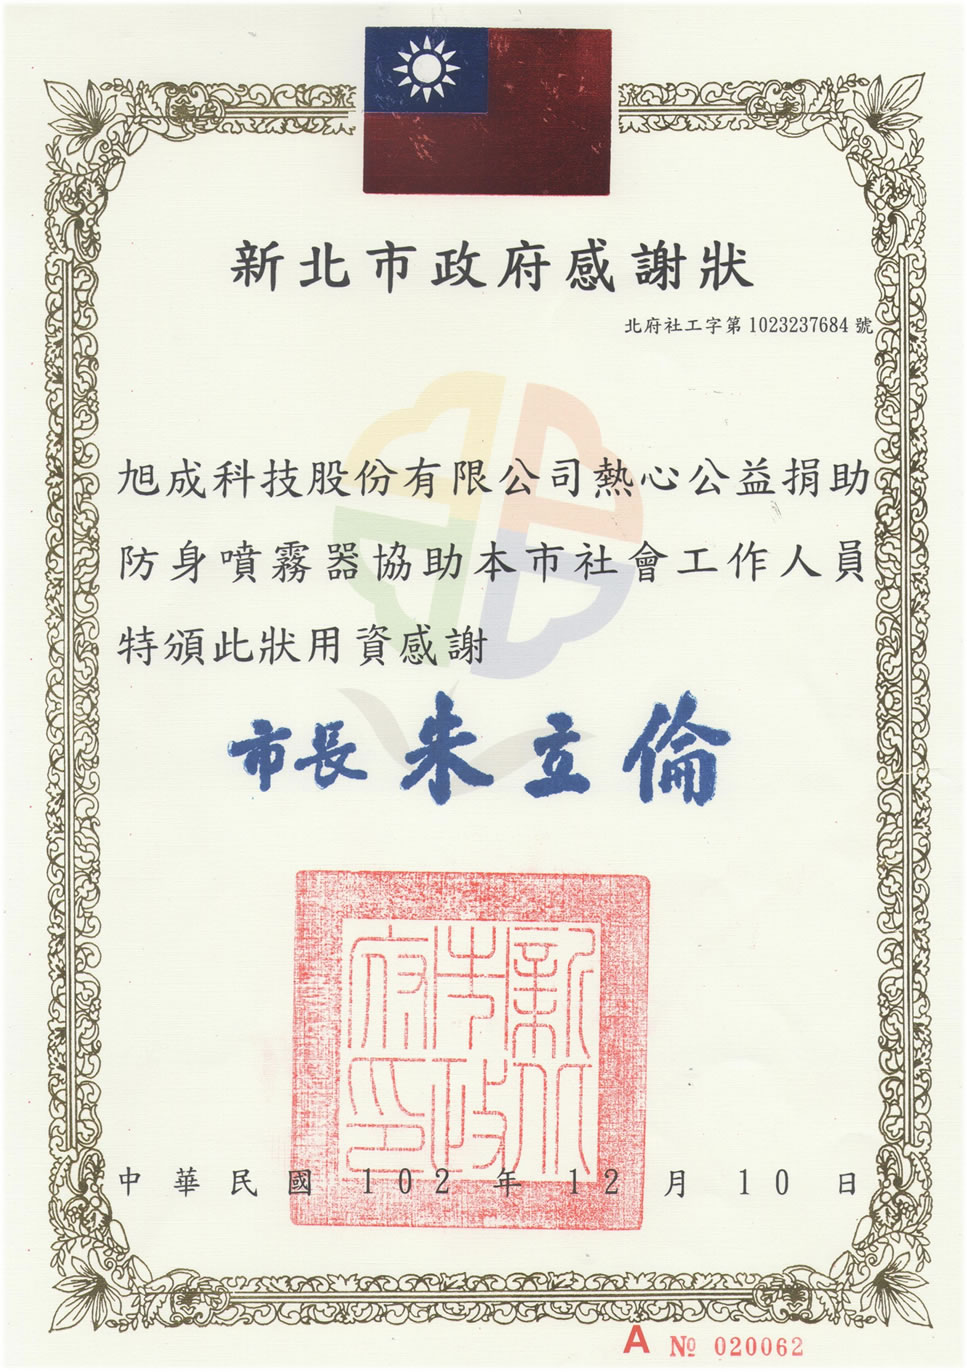 新北市政府感謝狀
北府社工字第1023237684號
旭成科技股份有限公司熱心公益捐助
防身噴霧器協助本市社會工作人員
特頒此狀用資感謝
市長 朱立倫
新北市政府印
中華民國 102 年 12 月 10 日
A № 020062